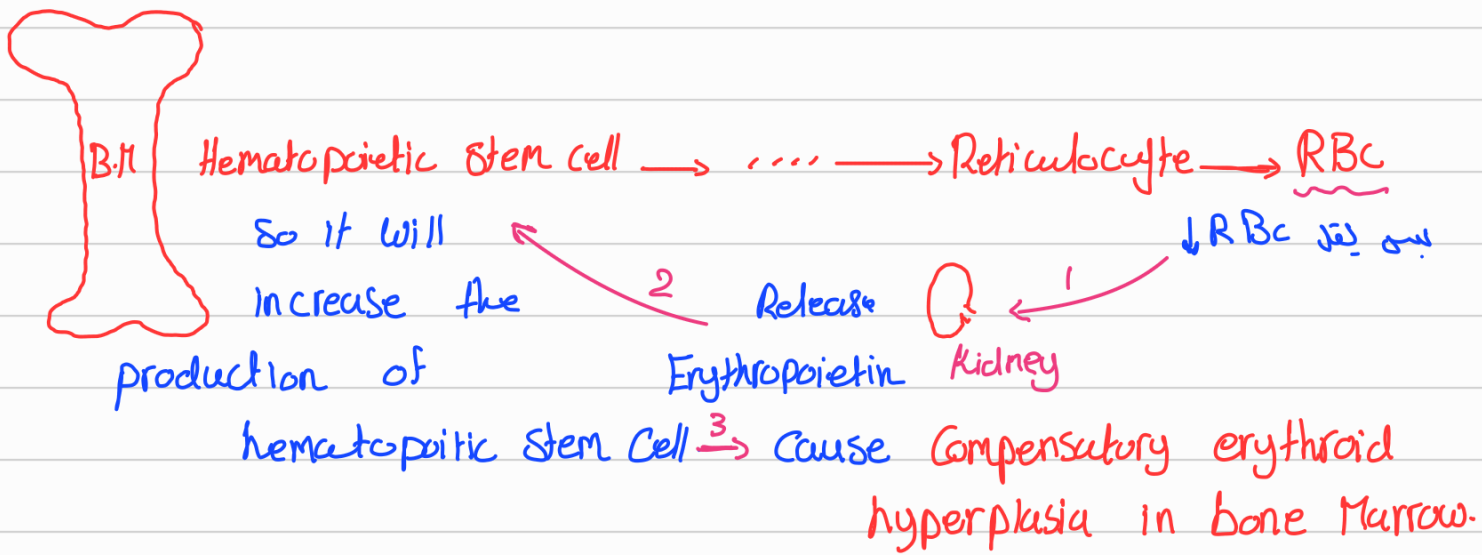 B.M Hematopoietic Stem cell → .... → Reticulocyte → RBc
So it will 2 1 ↓RBc بس يقل
increase the Release
production of Erythropoietin Kidney
hematopoitic Stem Cell 3 → Cause Compensatory erythroid
hyperplasia in bone Marrow.